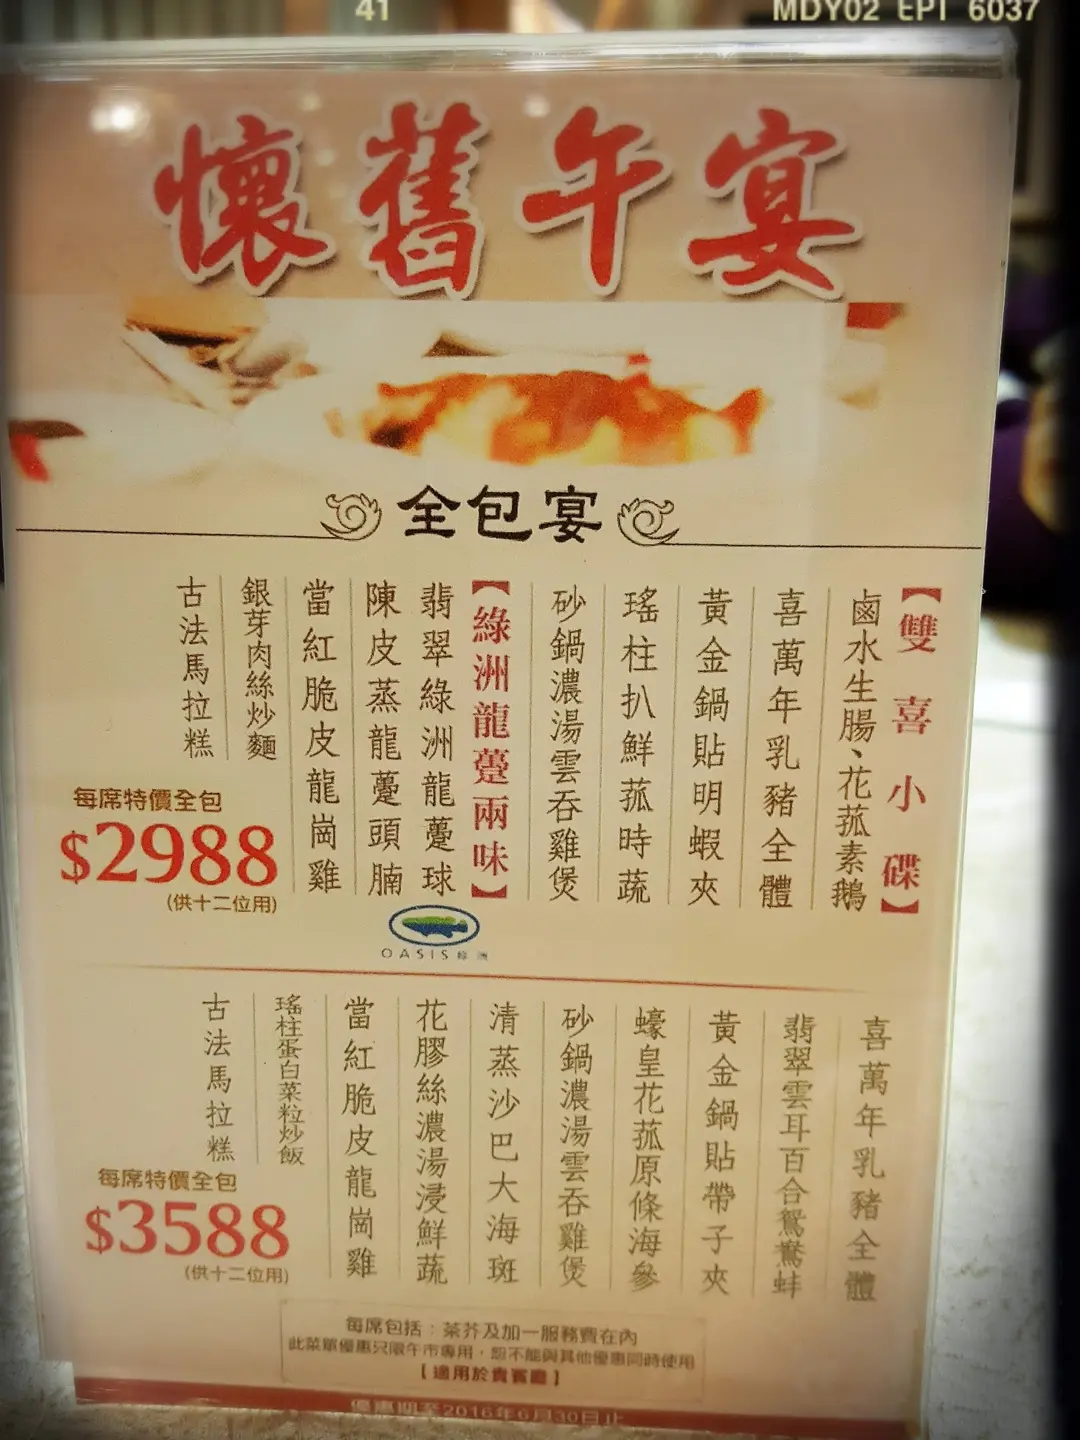 41
MDY02 EPI 6037
懷舊午宴
全包宴
【雙喜小碟】
鹵水生腸、花菰素鵝
喜萬年乳豬全體
黃金鍋貼明蝦夾
瑤柱扒鮮菰時蔬
砂鍋濃湯雲吞雞煲
【綠洲龍躉兩味】
翡翠綠洲龍躉球
陳皮蒸龍躉頭腩
當紅脆皮龍崗雞
銀芽肉絲炒麵
古法馬拉糕
每席特價全包
$2988
(供十二位用)
OASIS 綠洲
喜萬年乳豬全體
翡翠雲耳百合鴛鴦蚌
黃金鍋貼帶子夾
蠔皇花菰原條海參
砂鍋濃湯雲吞雞煲
清蒸沙巴大海斑
花膠絲濃湯浸鮮蔬
當紅脆皮龍崗雞
瑤柱蛋白菜粒炒飯
古法馬拉糕
每席特價全包
$3588
(供十二位用)
每席包括：茶芥及加一服務費在內
此菜單優惠只限午市專用，恕不能與其他優惠同時使用
【適用於貴賓廳】
優惠期至2016年6月30日止